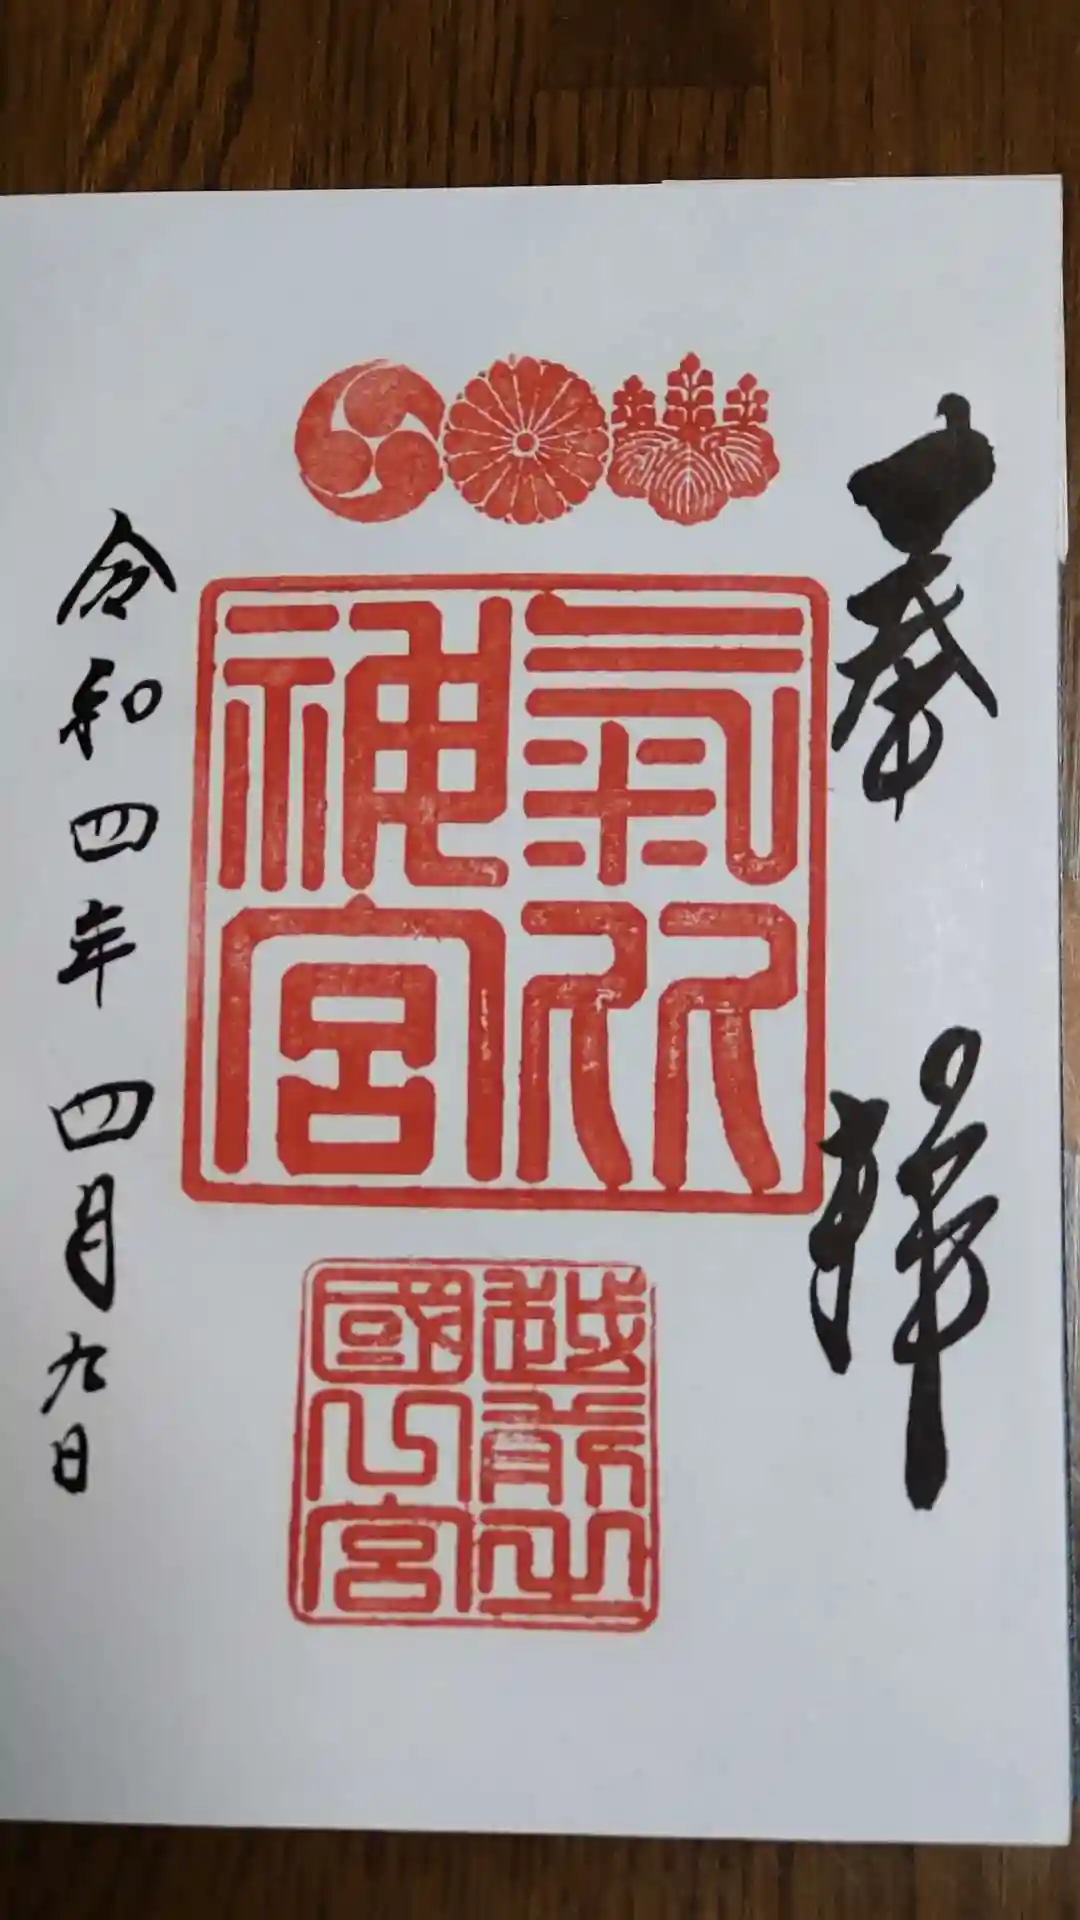 奉拜
氣比
神宮
越前之
國一宮
令和四年四月九日